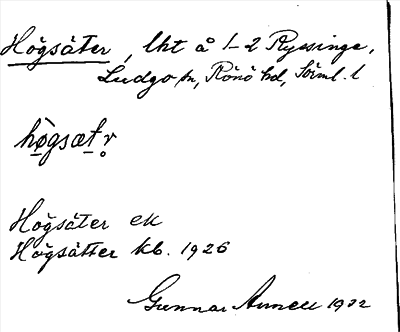 Högsäter, lht å 1-2 Ryssinge,
Ludgo sn, Rönö hd, Sörml. l
hògsætr̥
Högsäter ek
Högsätter kb. 1926
Gunnar 1932